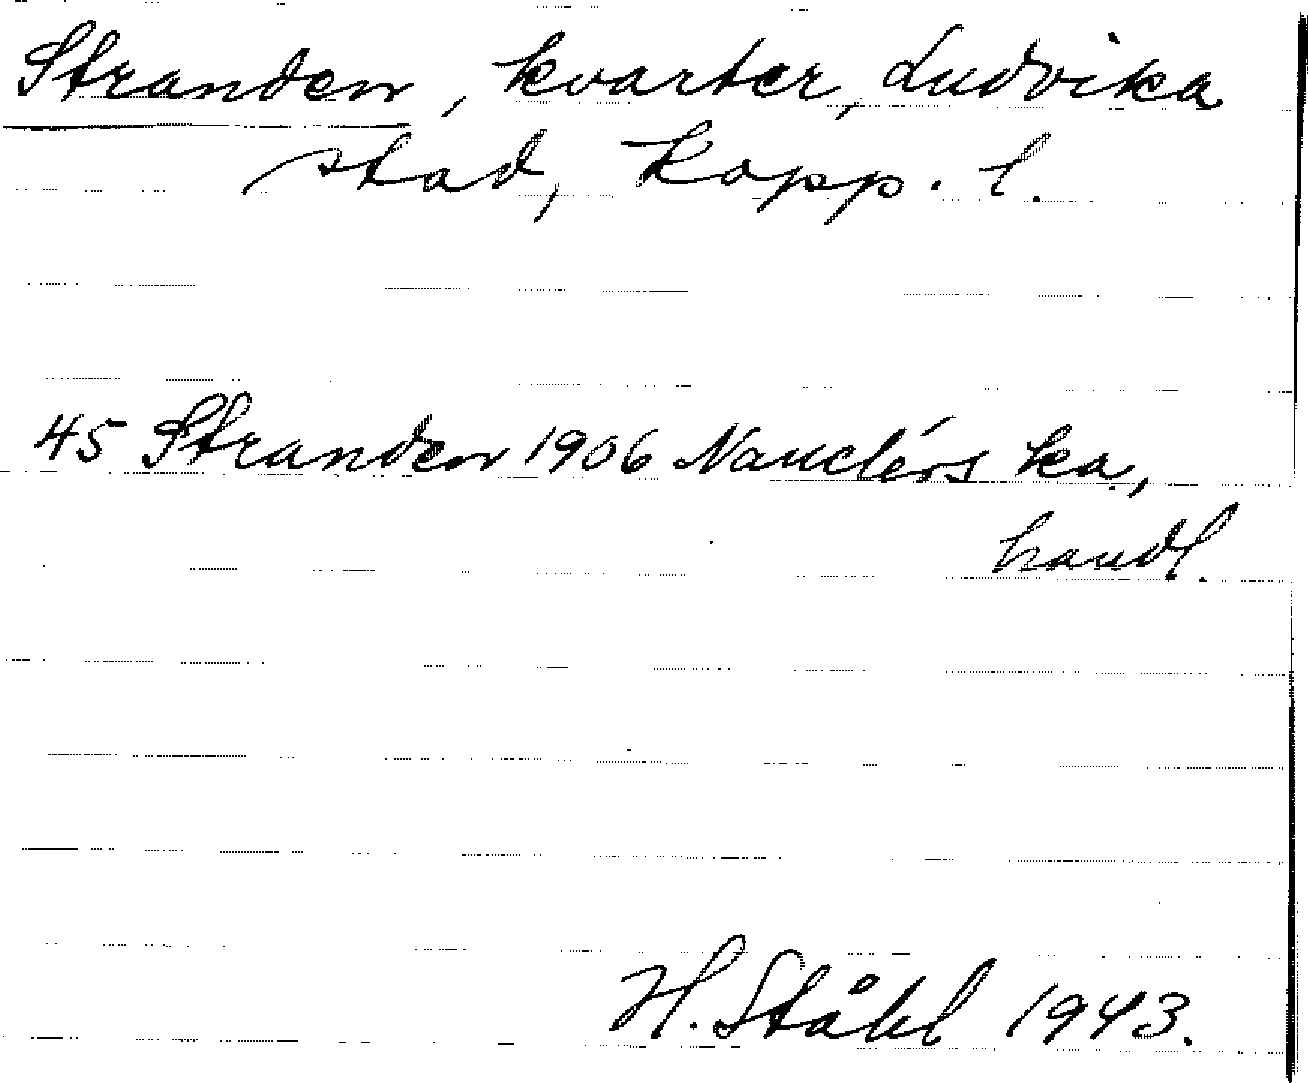 Stranden, kvarter, Ludvika
stad, Kopp. l.
45 Stranden 1906 Nauclérs ka.,
handl.
H. Ståhl 1943.